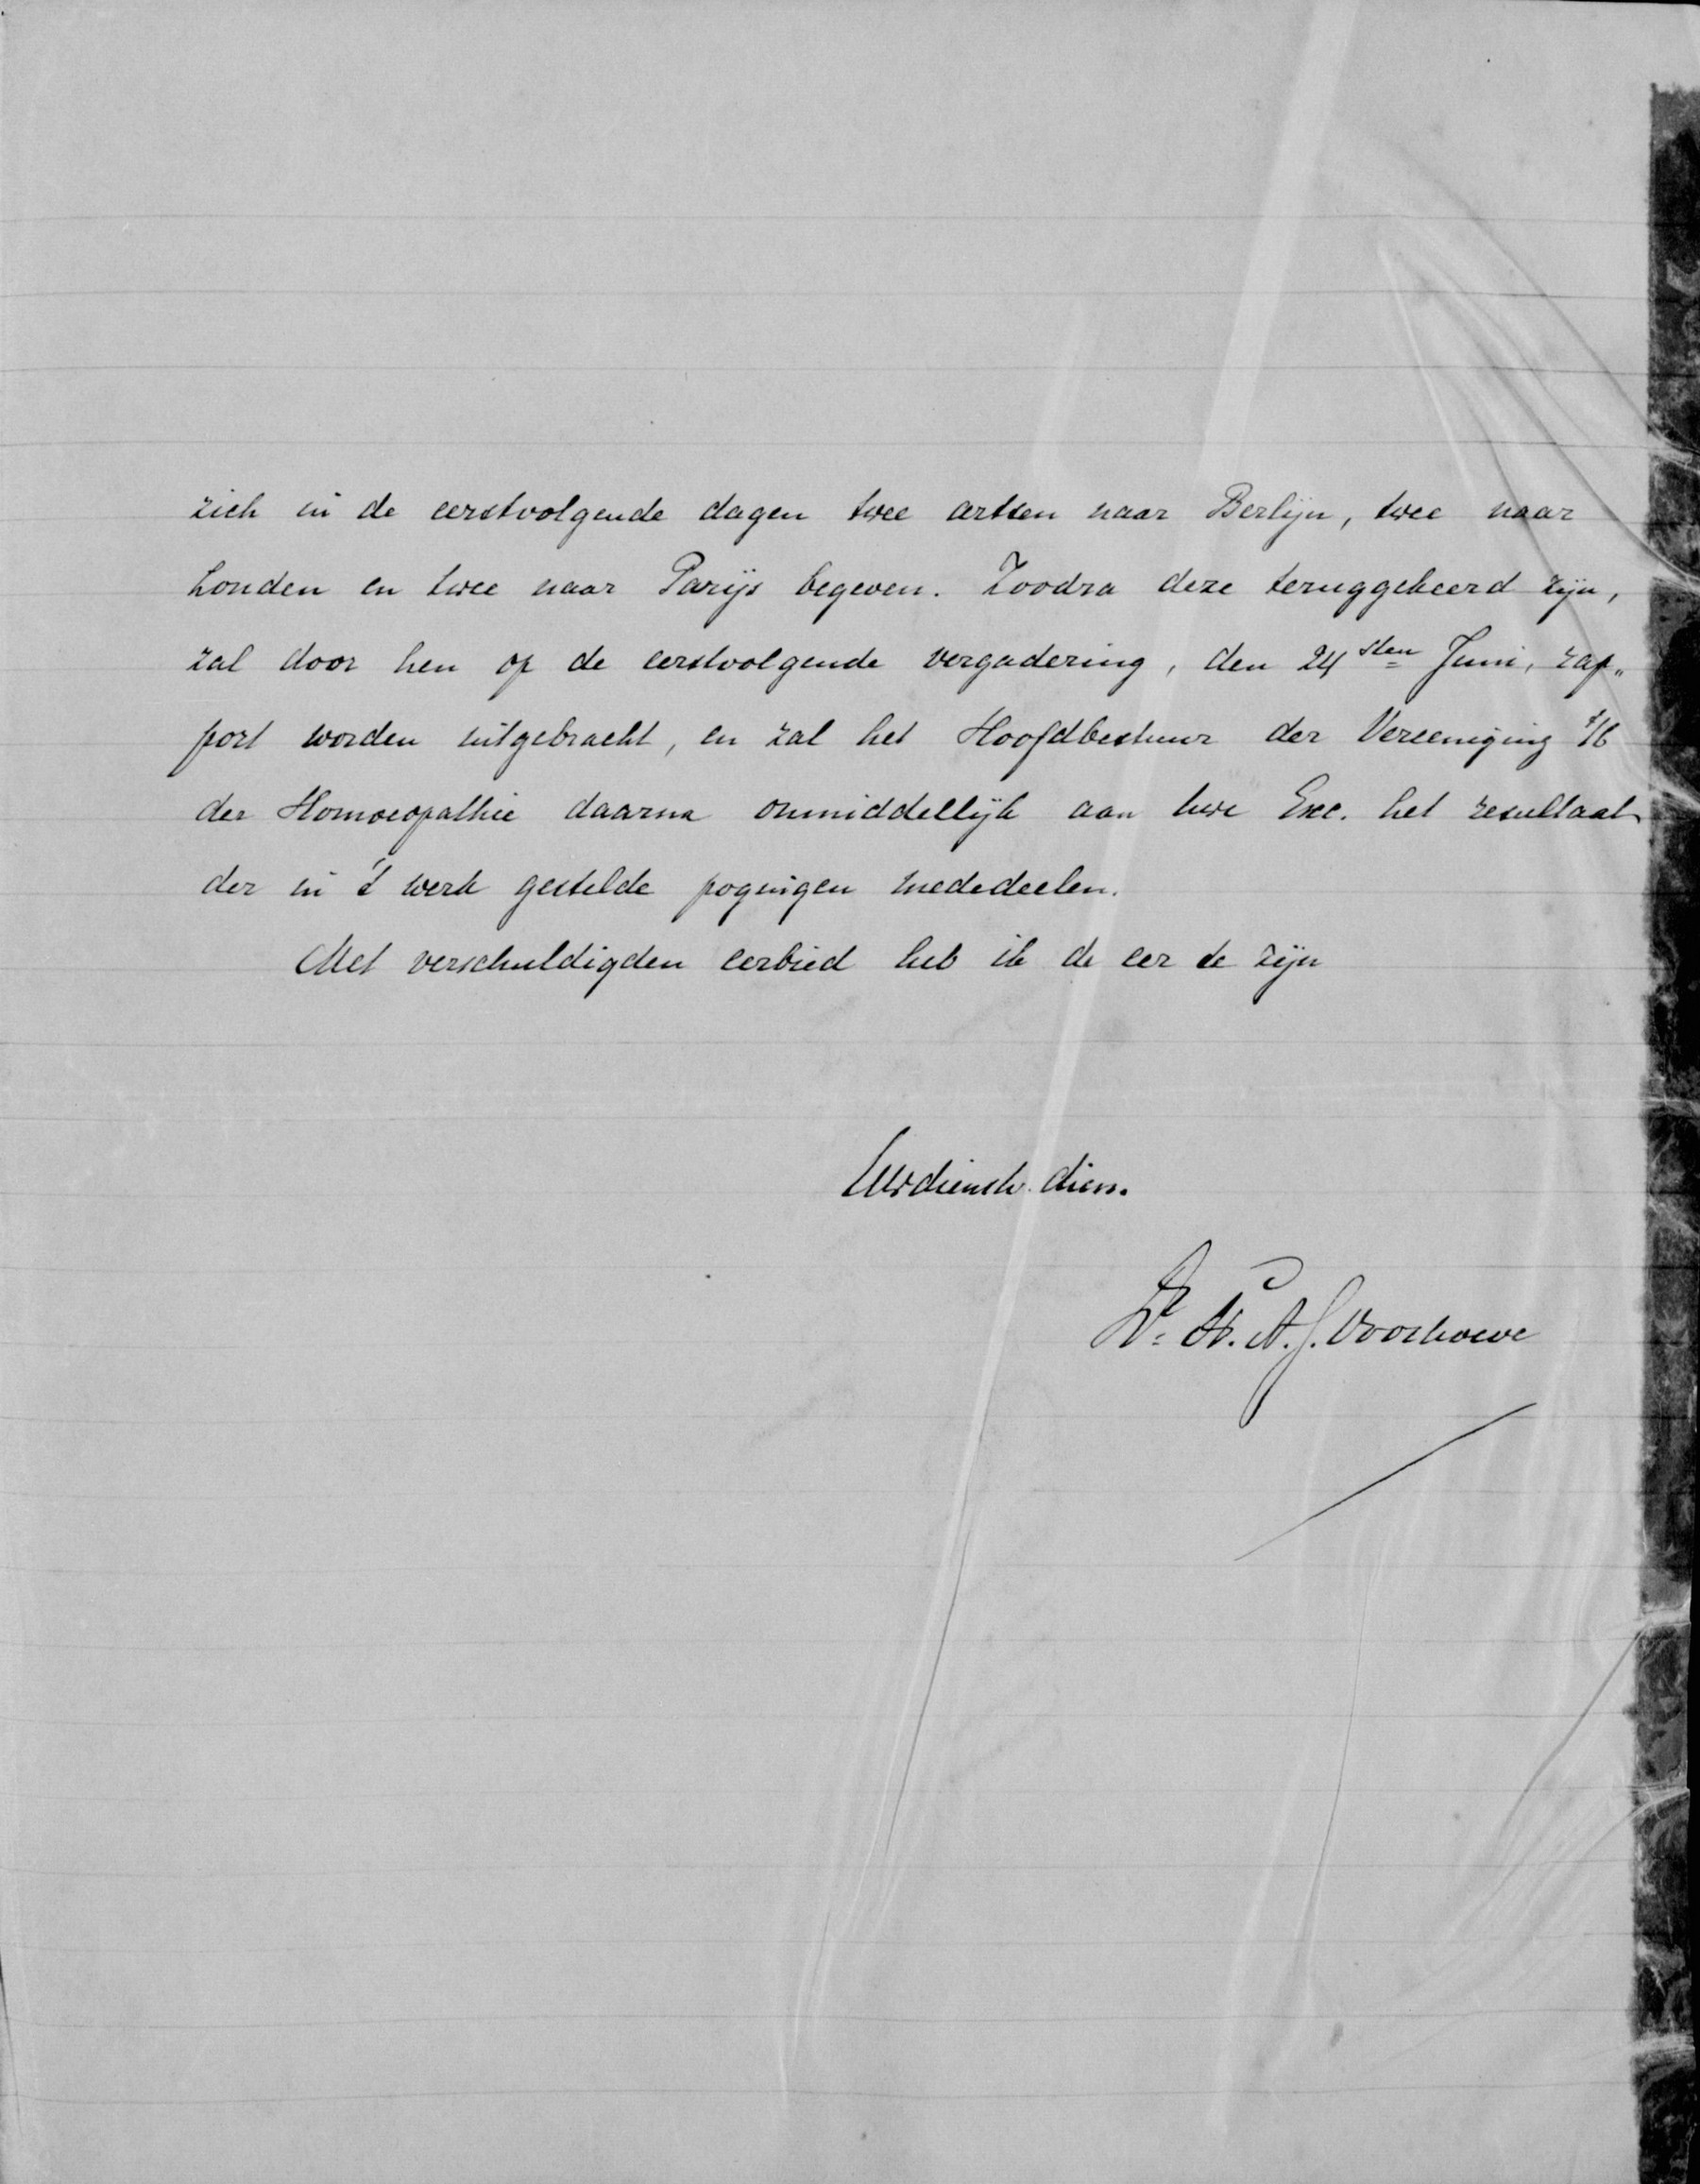 zich in de eerstvolgende dagen twee artsen naar Berlijn, twee naar
Londen en twee naar Parijs begeven. Zoodra deze teruggekeerd zijn,
zal door hen op de eerstvolgende vergadering, den 24sten Juni, rap„
port worden uitgebracht, en zal het Hoofdbestuur der Vereeniging t/b
der Homoeopathie daarna onmiddellijk aan Uwe Exc. het resultaat
der in 't werk gestelde pogingen mededeelen.
Met verschuldigden eerbied heb ik de eer te zijn
Uw dienstv. dien.
Dr. N. A. J. Voorhoeve